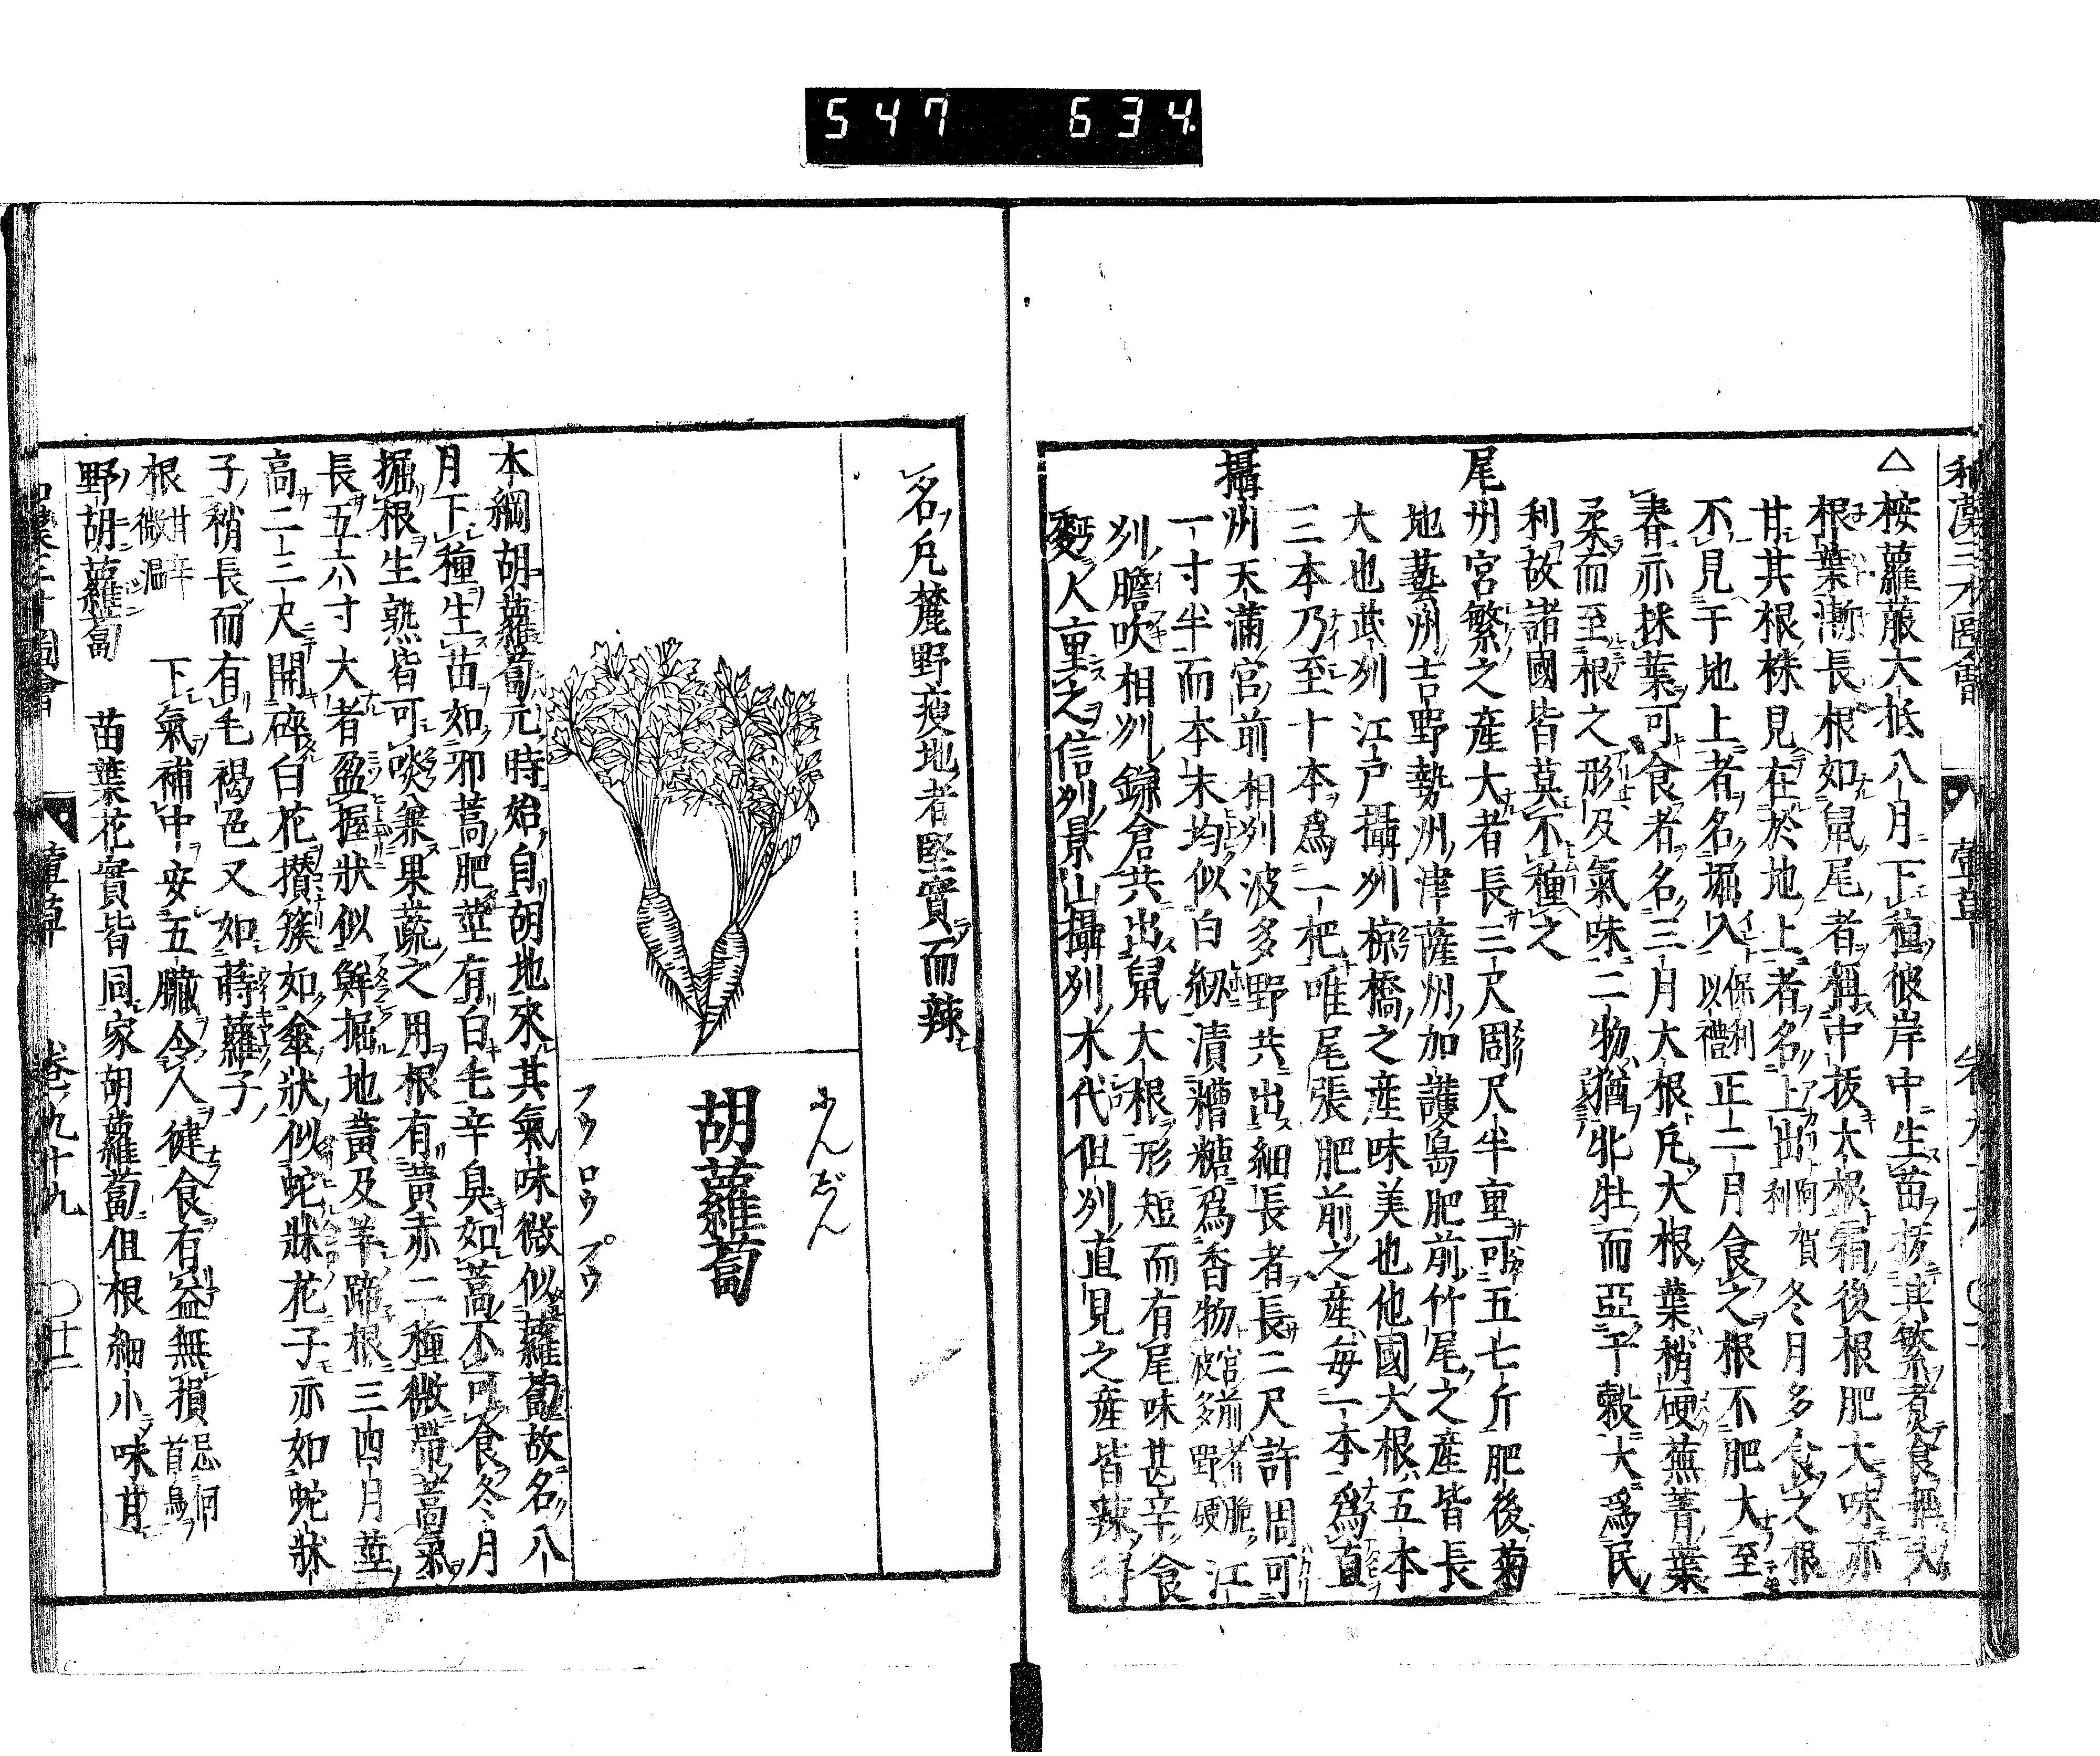 547 634.
和漢三才圖會 葷草 卷九十九
△按蘿蔔大抵八月下種彼岸中生苗拔其繁煮食無大
根葉漸長根如鼠尾者稱中拔大根霜後根肥大味亦
甘其根株見在於地上者名上出利 阿賀 冬月多食之根
不見于地上者名堀入 保利以禮 正二月食之根不肥大至
春亦採葉可食者名三月大根凡大根葉稍硬蕪菁葉
柔而至根之形及氣味二物猶牝牡而亞于穀大爲民
利故諸國皆莫不種之
尾州宮繁之産大者長三尺周尺半重可五七斤肥後菊
地藝州吉野勢州津薩州加護島肥前竹尾之産皆長
大也武州江戸攝州椋橋之産味美也他國大根五本
三本乃至十本爲一把唯尾張肥前之産毎一本爲直
攝州天滿宮前相州波多野共出細長者長二尺許周可
一寸半而本末均似白綱漬糟糖爲香物 宮前者脆波多野硬 江
州膽吹相州鎌倉共出鼠大根形短而有尾味甚辛食
麪人重之信州景山攝州木代但州直見之産皆辣得
名凡麓野痩地者堅實而辣
にんじん
胡蘿蔔
フウ ロウ プウ
本綱胡蘿蔔元時始自胡地來其氣味微似蘿蔔故名八
月下種生苗如邪蒿肥莖有白毛辛臭如蒿不可食冬月
掘根生熟皆可啖兼果蔬之用根有黄赤二種微帶蒿氣
長五六寸大者盈握狀似鮮掘地黄及羊蹄根三四月莖
高二三尺開碎白花攅簇如傘狀似蛇牀花子亦如蛇牀
子稍長而有毛褐色又如蒔蘿子
根 甘辛微温 下氣補中安五臟令人健食有益無損 忌何首烏
野胡蘿蔔 苗葉花實皆同家胡蘿蔔但根細小味甘
葷草 卷九十九 〇廿二